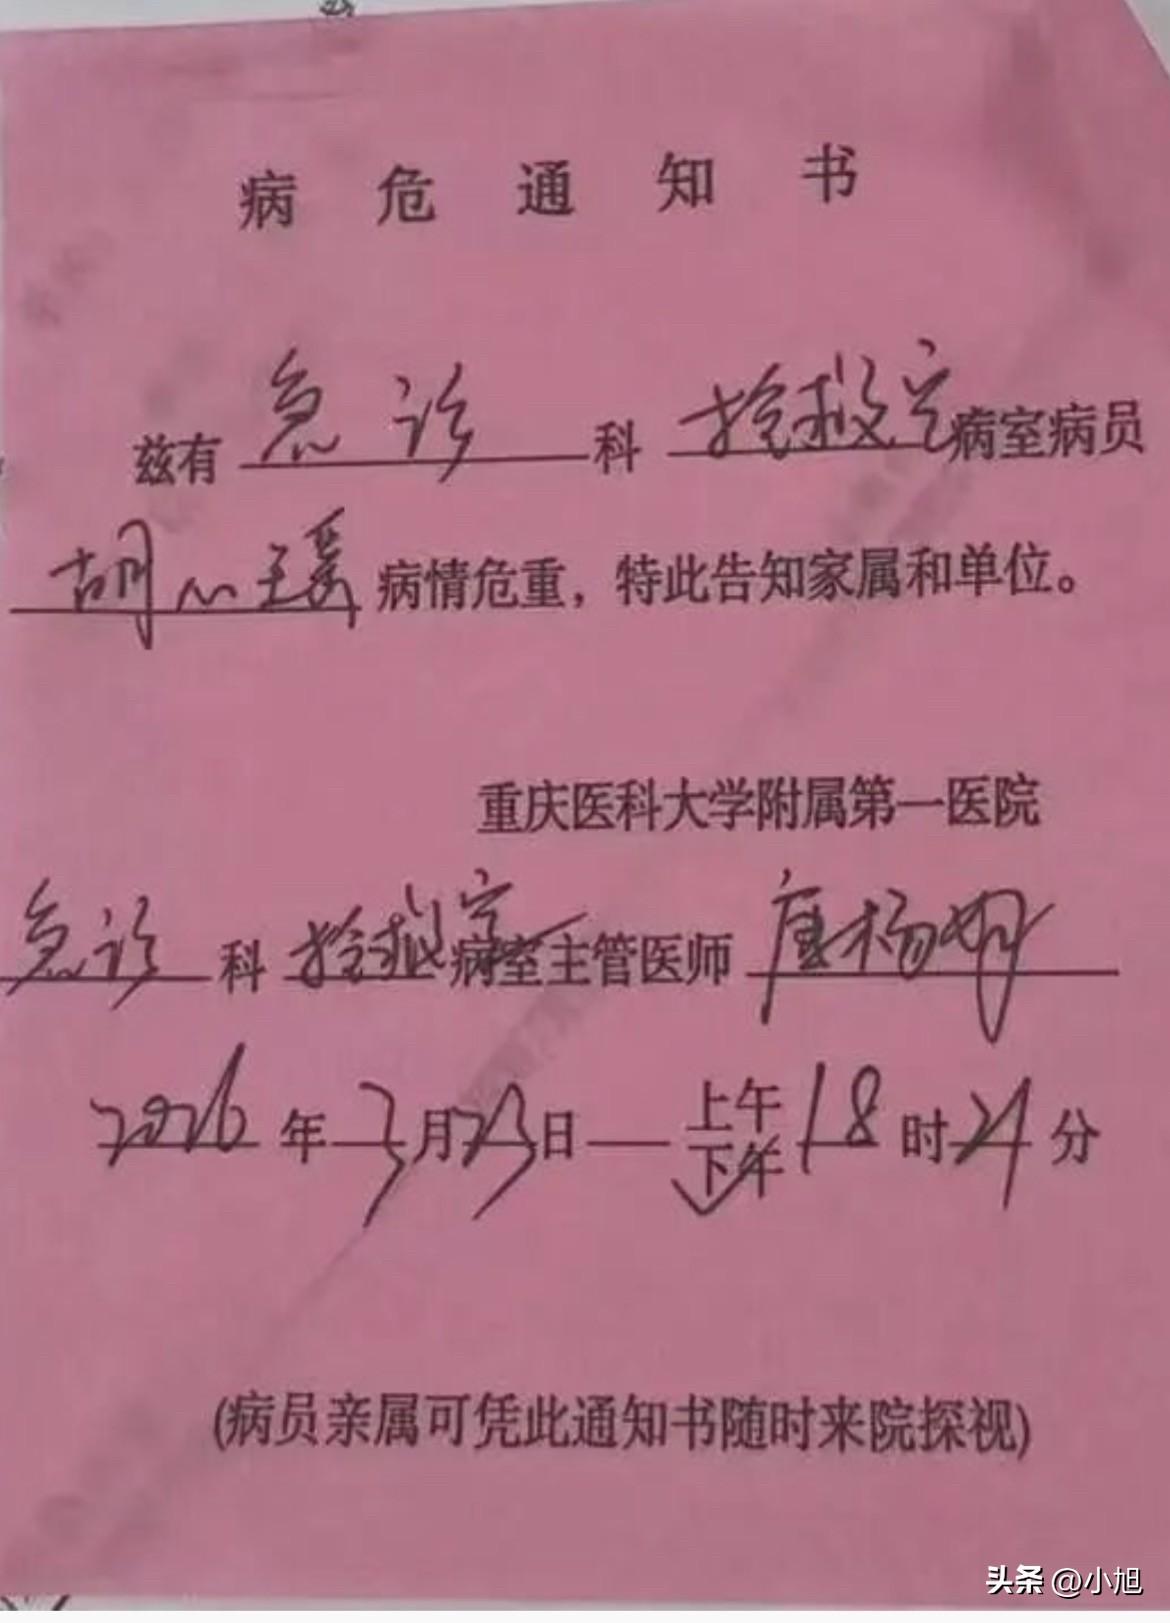 病危通知书
兹有 急诊 科 抢救室 病室病员
胡心瑶 病情危重，特此告知家属和单位。
重庆医科大学附属第一医院
急诊 科 抢救室 病室主管医师 唐杨
2026 年 3 月 23 日 上午
下午 18 时 21 分
(病员亲属可凭此通知书随时来院探视)
头条 @小旭